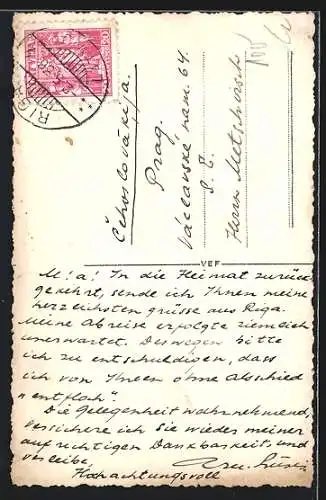 RIGA
LATVIJA
Čehoslovākija.
Prag.
Václavské nam. 64.
S. E.
Herrn Metscharsch
VEF
M! a! In die Heimat zurück
gekehrt, sende ich Ihnen meine
herzlichsten grüsse aus Riga.
Meine Abreise erfolgte ziemlich
unerwartet. Deswegen bitte
ich zu entschuldigen, dass
ich von Ihnen ohne Abschied
"entfloh".
Die Gelegenheit wahrnehmend,
versichere ich Sie wieder meiner
aufrichtigen Dankbarkeit, und
verbleibe
Hochachtungsvoll